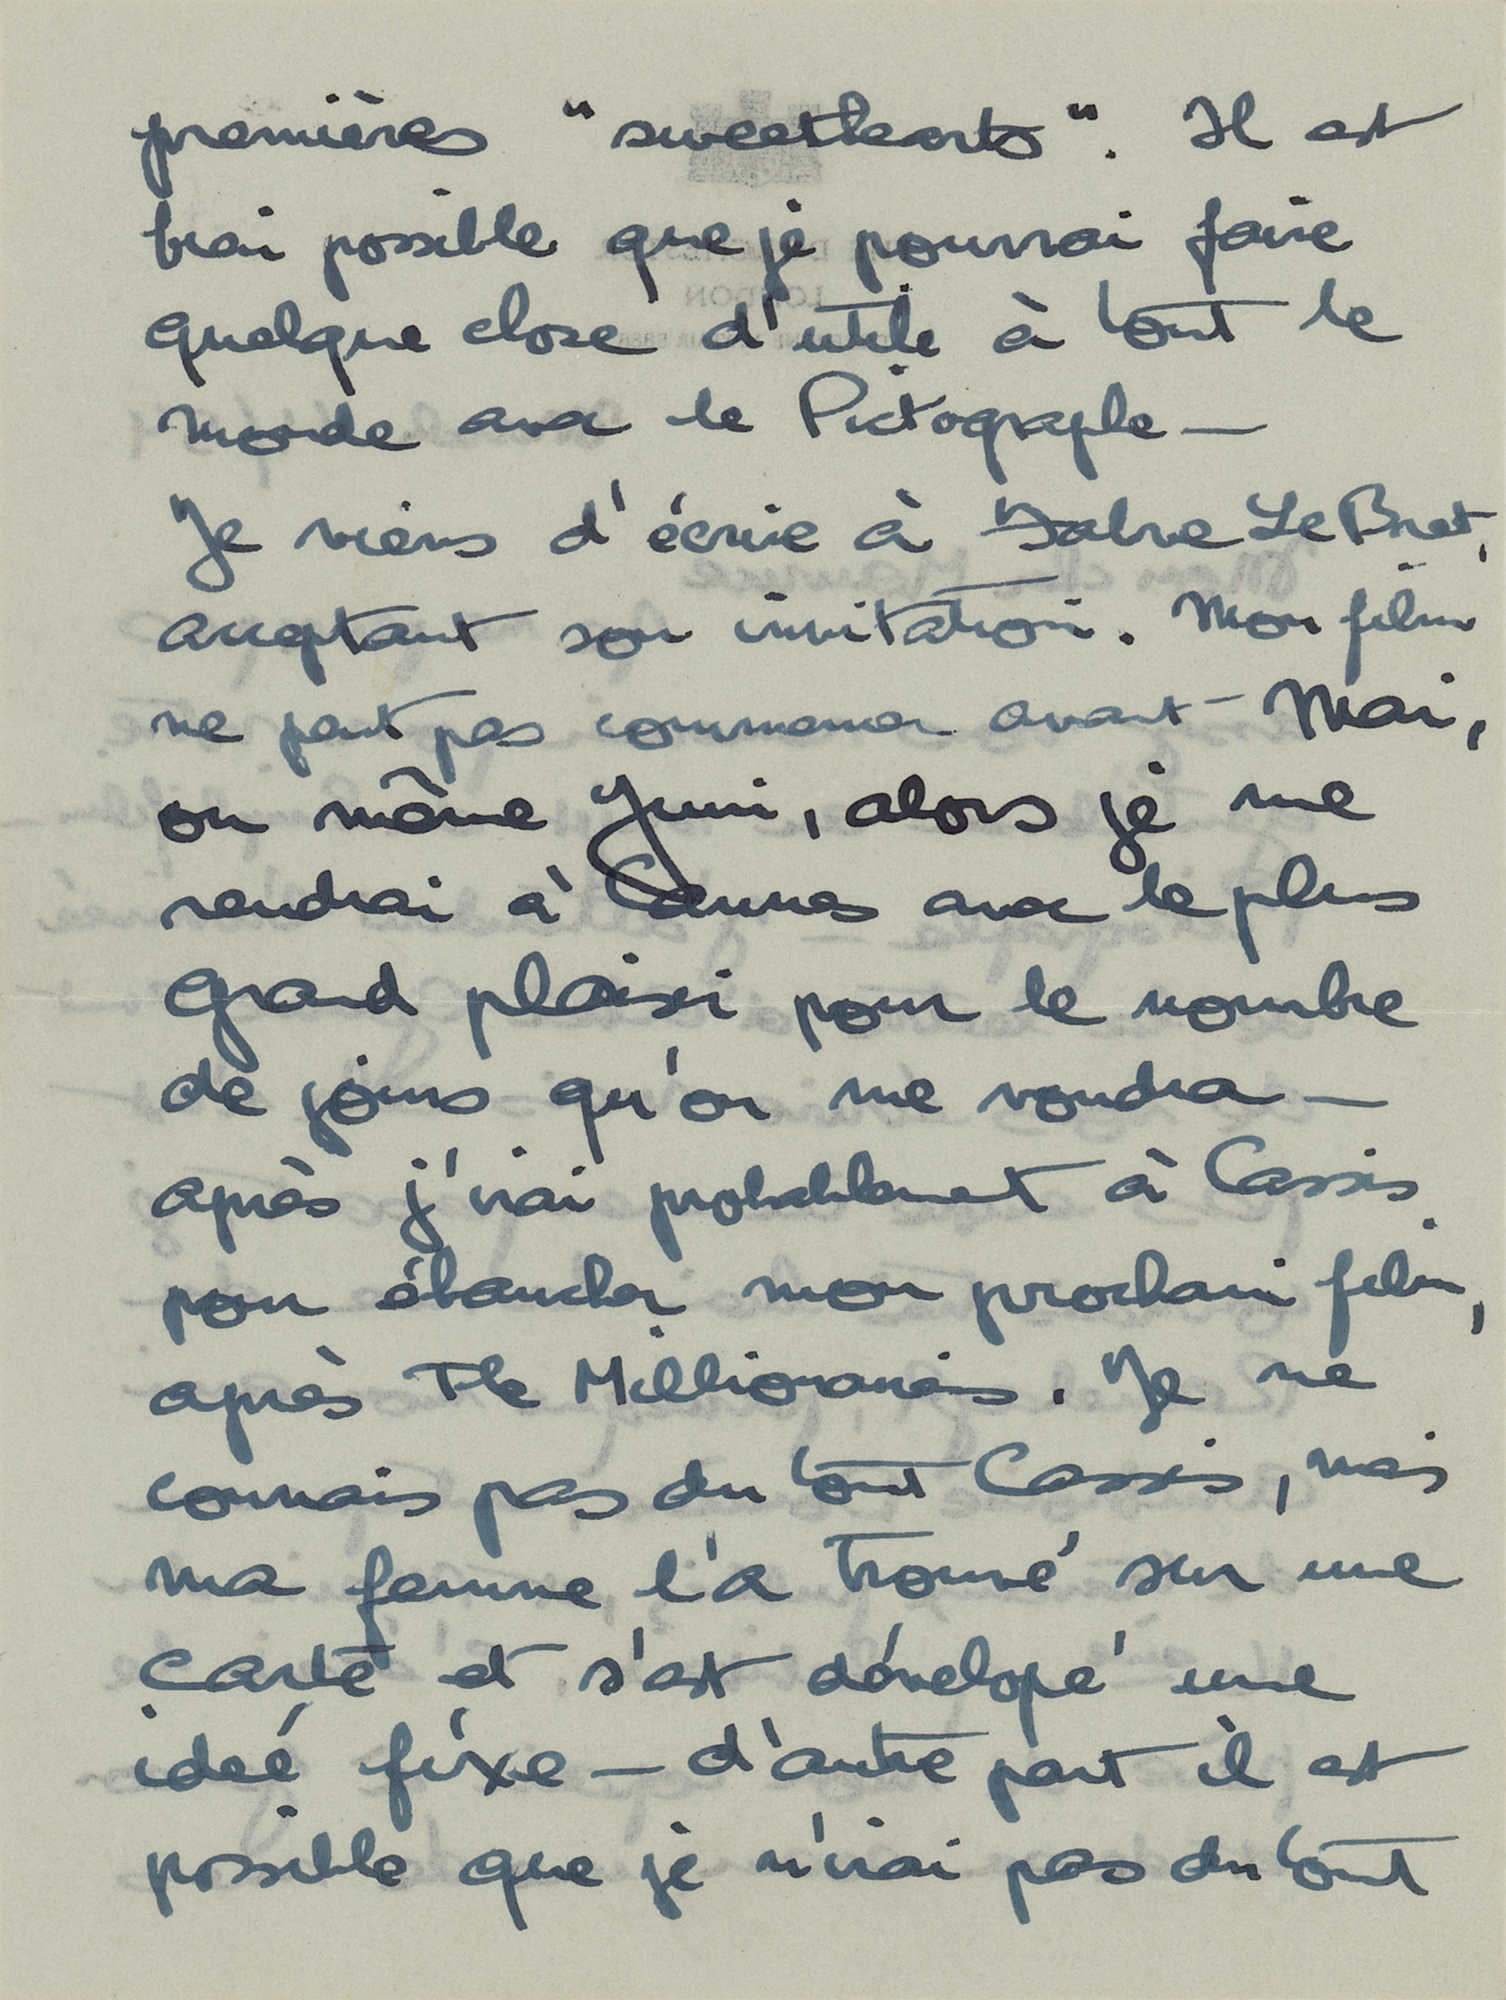 premières "sweethearts". Il est
bien possible que je pourrai faire
quelque chose d'utile à tout le
monde avec le Pictographe —
Je viens d'écrire à Fabre Le Bret,
acceptant son invitation. Mon film
ne peut pas commencer avant Mai,
ou même Juin, alors je me
rendrai à Cannes avec le plus
grand plaisir pour le nombre
de jours qu'on me voudra —
après j'irai probablement à Cassis
pour ébaucher mon prochain film,
après The Millionairess. Je ne
connais pas du tout Cassis, mais
ma femme l'a trouvé sur une
carte et s'est dévelopé une
ideé fixe — d'autre part il est
possible que je n'irai pas du tout